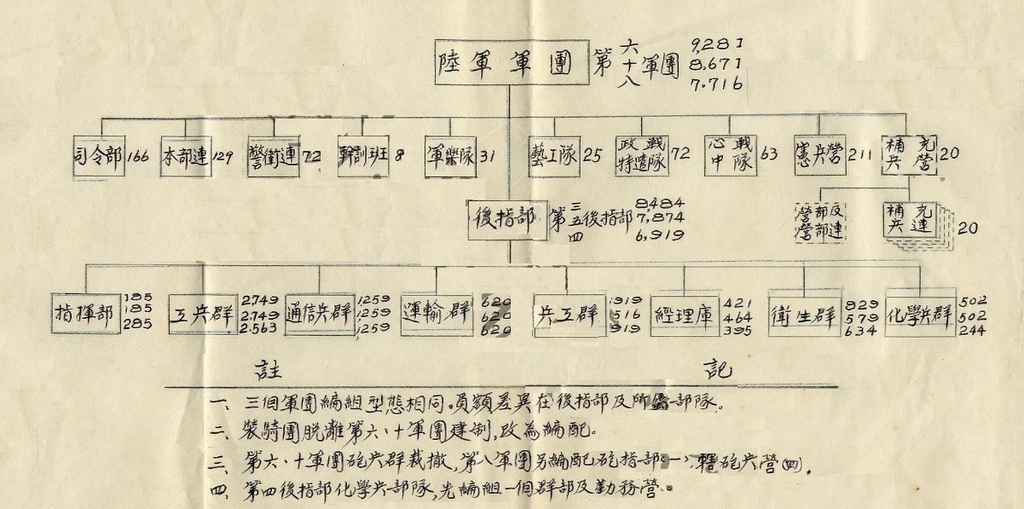 陸軍軍團 第六十八軍團 9,281 8,671 7,716
司令部 166 本部連 129 警衛連 72 幹訓班 8 軍樂隊 31 藝工隊 25 政戰特遣隊 72 心戰中隊 63 憲兵營 211 補充兵營 20
後指部 第三五四後指部 8484 7,874 6,919 營部及營部連 補充兵連 20
指揮部 195 195 285 工兵群 2,749 2,749 2,563 通信兵群 1,259 1,259 1,259 運輸群 620 620 620 兵工群 1919 516 919 經理庫 421 464 395 衛生群 829 579 634 化學兵群 502 502 244
註 記
一、三個軍團編組型態相同,員額差異在後指部及所屬部隊。
二、裝騎團脫離第六、十軍團建制,改為編配。
三、第六、十軍團砲兵群裁撤,第八軍團另編配砲指部(一)、輕砲兵營(四)。
四、第四後指部化學兵部隊,先編組一個群部及勤務營。